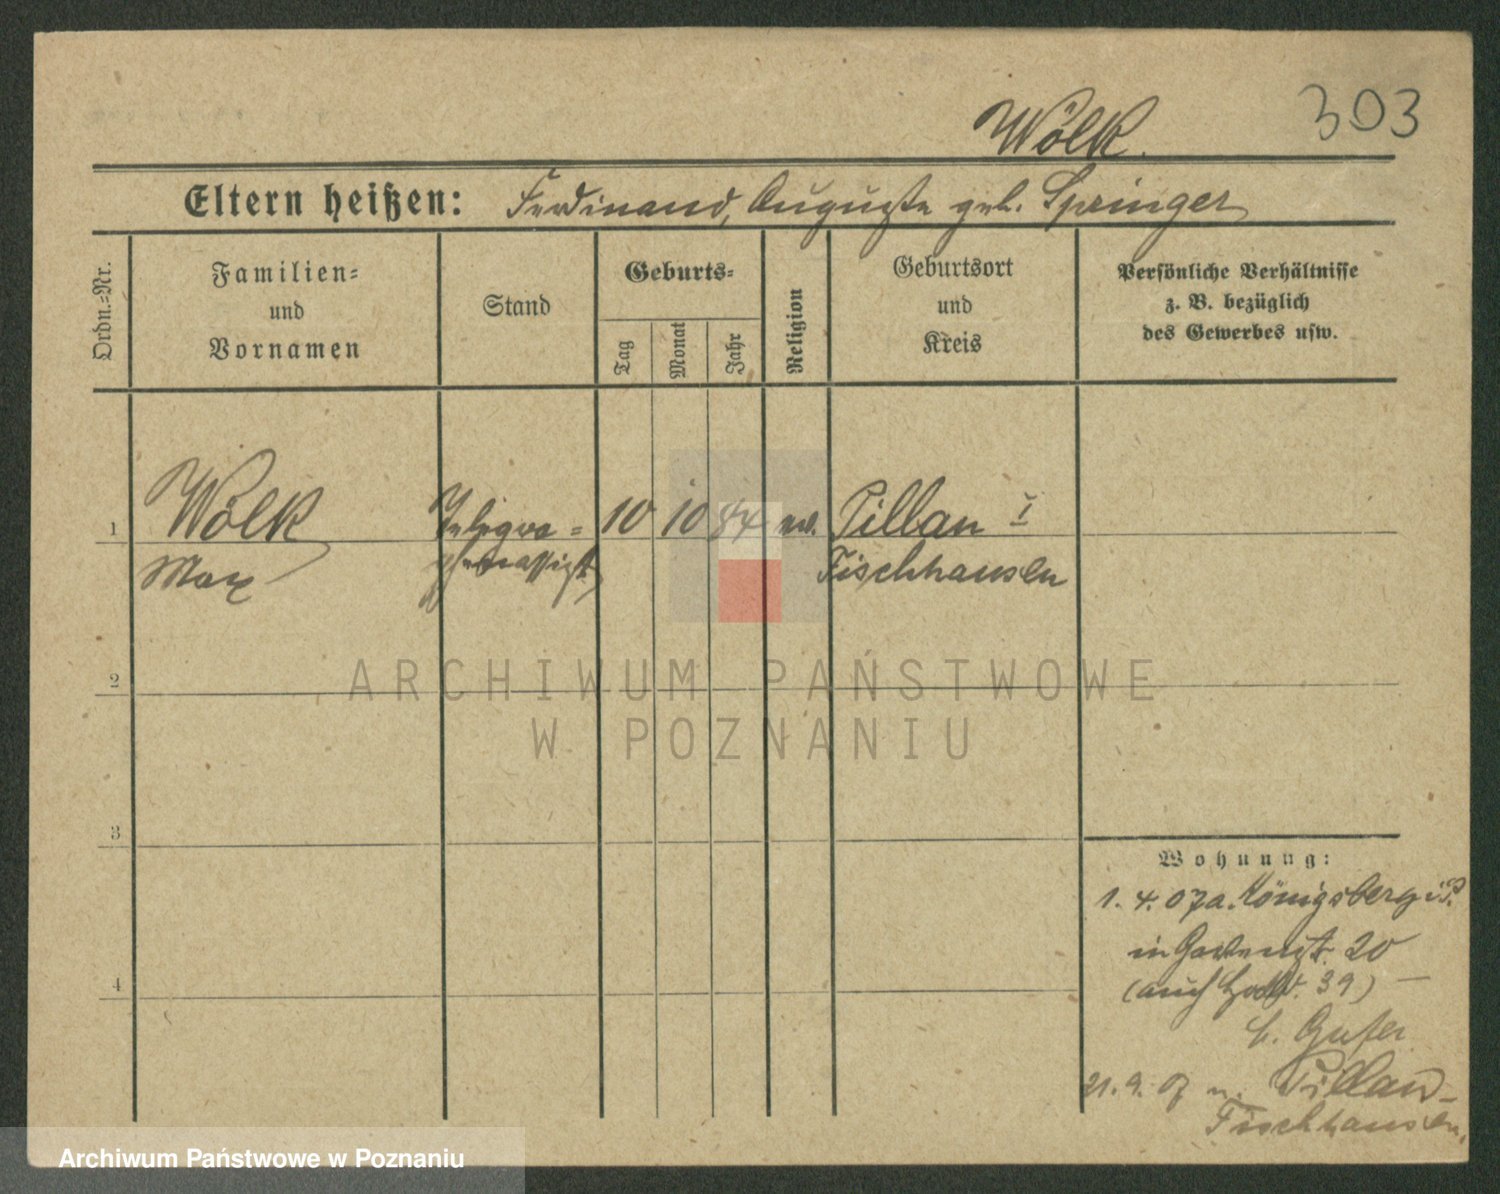 303
Wölk.
Eltern heißen: Ferdinand, Auguste geb. Springer
Ordn.=Nr.
Familien=
und
Vornamen
Stand
Geburts=
Tag
Monat
Jahr
Religion
Geburtsort
und
Kreis
Persönliche Verhältnisse
z. B. bezüglich
des Gewerbes usw.
1
Wölk
Max
Telegra=
phenassist.
10 10 84
Pillau I
Fischhausen
2
3
4
Wohnung:
1. 4. 07 a. Königsberg i. P.
in 20
(auch 39) —
b.
21. 9. 07 n. Pillau-
Fischhausen.
ARCHIWUM PAŃSTWOWE
W POZNANIU
Archiwum Państwowe w Poznaniu